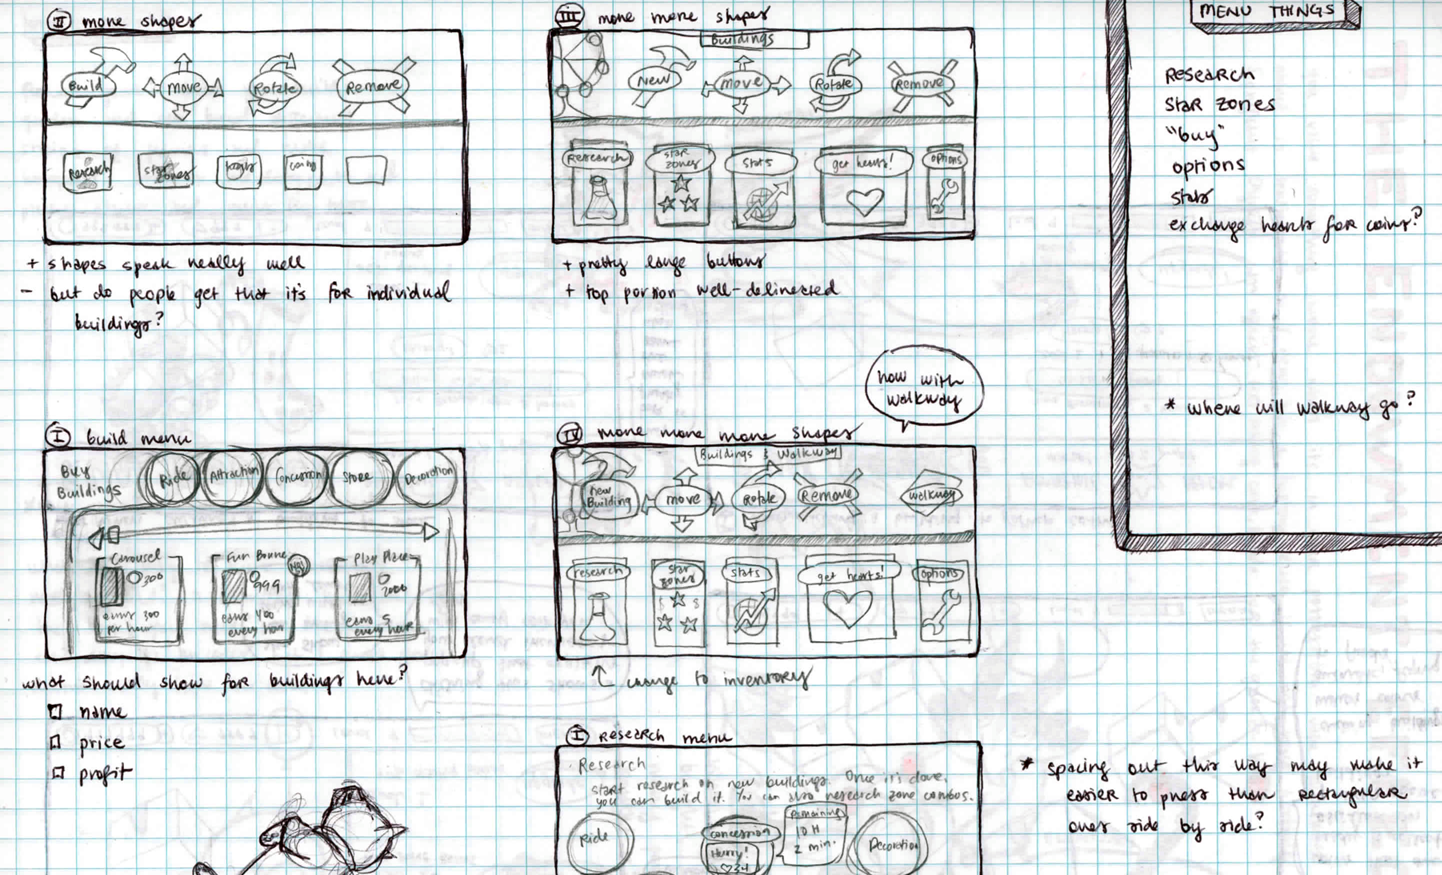 II more shapes
Build
move
Rotate
Remove
Research
star zones
+ shapes speak really well
- but do people get that it's for individual
buildings?
III more more shapes
Buildings
New
move
Rotate
Remove
Research
star
zones
stats
get hearts!
options
+ pretty large buttons
+ top portion well-delineated
MENU THINGS
Research
star zones
"buy"
options
stats
exchange hearts for coins?
* where will walkway go?
I build menu
Buy
Buildings
Ride
Attraction
Concession
Store
Decoration
Carousel
300
earns 300
per hour
Fun Bounce
999
earns 400
every hour
Play Place
2000
earns 5
every hour
what should show for buildings here?
name
price
profit
now with
walkway
IV more more more shapes
Buildings & Walkway
new
Building
move
Rotate
Remove
walkway
research
star
zones
stats
get hearts!
options
↑ change to inventory
I Research menu
Research
start research on new buildings. Once it's done,
you can build it. You can also research zone combos.
Ride
concession
Hurry!
Remaining
10 H
2 min.
Decoration
* spacing out this way may make it
easier to press than rectangular
ones side by side?